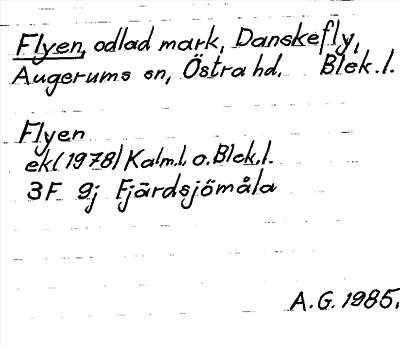 Flyen, odlad mark, Danskefly,
Augerums sn, Östra hd. Blek.l.
Flyen
ek(1978) Kalm.l. o. Blek.l.
3F 9j Fjärdsjömåla
A.G. 1985.